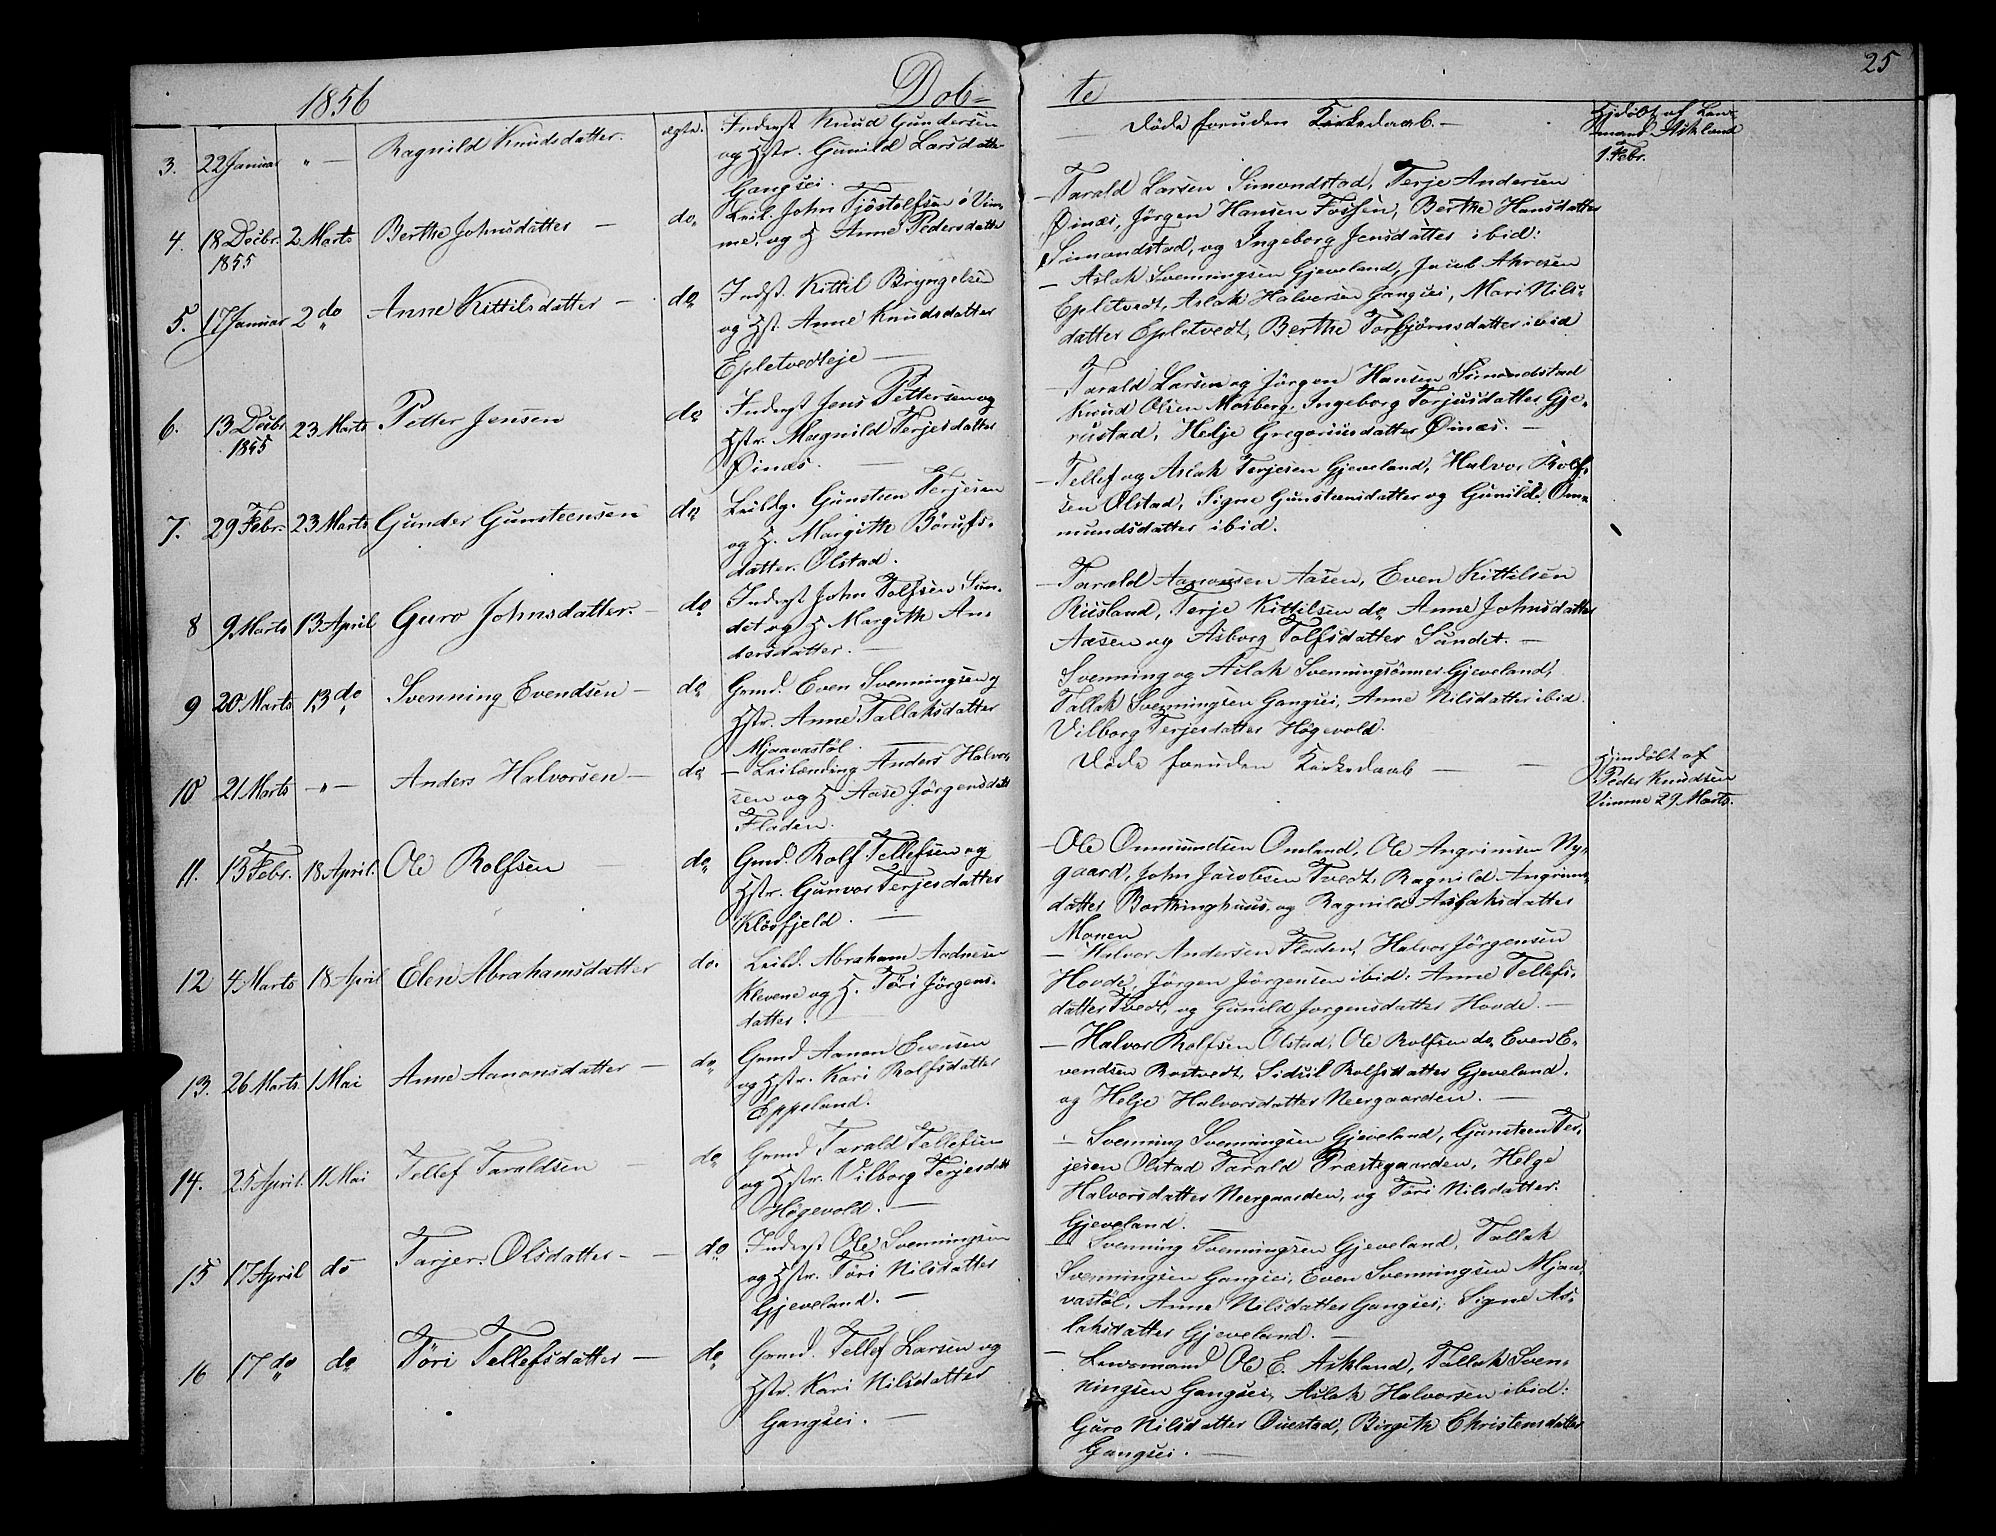 1856 Döb=
te 25
3. 22 Januar " — Ragnild Knudsdatter. ægte. Inderst Knud Gundersen
og Hstr. Gunild Larsdatter
Gangsei.
— Döde foruden Kirkedaab. —
Hjdöbt af Lens
mand Askland
1 Febr.
4. 18 Decbr. 1855 2 Marts Berthe Johnsdatter — do Leil. John Tjöstolfsen ö Vim
me, og H. Anne Pedersdatter
— Tarald Larsen Simonstad, Terje Andersen
Öinæs, Jörgen Hansen Fossen, Berthe Hansdatter
Simonstad, og Ingeborg Jensdatter ibid:
5. 17 Januar 2 do Anne Kittilsdatter — do Indst. Kittil Bryngelsen
og Hst. Anne Knudsdatter
Epletvedteje —
— Aslak Svenningsen Gjeveland, Jacob
Epletvedt, Aslak Halvorsen Gangsei, Mari Nils-
datter Epletvedt, Berthe Torbjörnsdatter ibid
6. 13 Decbr 1855 23 Marts Petter Jensen do Inderst Jens Pettersen og
Hstr. Magnild Terjesdatter
Öinæs. —
— Tarald Larsen og Jörgen Hansen Simondstad
Knud Olsen Mosberg, Ingeborg Torjusdatter Gje-
rustad, Helje Gregoriusdatter Öinæs. —
7. 29 Febr. 23 Marts Gunder Gunsteensen do Leildg. Gunsteen Terjesen
og H. Margith Börufs-
datter Olstad.
— Tellef og Aslak Terjesen Gjeveland, Halvor Rolf-
sen Olstad, Signe Gunsteensdatter og Gunild Om-
mundsdatter ibid.
8 9 Marts 13 April Guro Johnsdatter. — do Inderst John Tolfsen Sun-
det og H Margith An-
dersdatter. —
— Tarald Aanonsen Aasen, Even Kittilsen
Riisland, Terje Kittilsen do Anne Johnsdatter
Aasen og Asborg Tolfsdatter Sundet —
9 20 Marts 13 do Svenning Evendsen — do Grmd. Even Svenningsen og
Hstr. Anne Tallaksdatter
Mjaavastöl. —
Svenning og Aslak Svenningsönner Gjeveland,
Tallak Svenningsen Gangsei, Anne Nilsdatter ibid.
Vilborg Terjesdatter Högevold.
10 21 Marts — " — Anders Halvorsen — do — Leilænding Anders Halvor-
sen og H Aase Jörgensdatt
Fladen.
Döde foruden Kirkedaab — —
Hjemdöbt af
Peder Knudsen
Vimme 29 Marts.
11. 13 Febr. 18 April. Ole Rolfsen — do Grmd. Rolf Tellefsen og
Hstr. Gunvor Terjesdatter
Klösfjeld. —
— Ole Ommundsen Omland, Ole Angrimsen Ny-
gaard, John Jacobsen Tvedt, Ragnild Angrims-
datter Borthinghuus, og Ragnild Aslaksdatter
Monen
12 4 Marts 18 April Elen Abrahamsdatter do. Leild. Abraham Aadnesen
Klevene og H. Töri Jörgens-
datter. —
— Halvor Andersen Fladen, Halvor Jörgensen
Hovde, Jörgen Jörgensen ibid: Anne Tellefs-
datter Tvedt, og Gunild Jorgensdatter Hovde. —
13. 26 Marts 1 Mai Anne Aanonsdatter — do Grmd Aanon Evensen
og Hstr. Kari Rolfsdatter
Eppeland.
— Halvor Rolfsen Olstad, Ole Rolfsen do, Even E-
vendsen Rostvedt, Sidsil Rolfsdatter Gjeveland,
og Helje Halvorsdatter Neergaarden. —
14. 25 April. 11 Mai Tellef Taraldsen — do Grmd Tarald Tellefsen
og Hstr. Vilborg Terjesdatt
Högevold. —
— Svenning Svenningsen Gjeveland, Gunsteen Ter-
jesen Olstad Tarald Præstegaarden, Helge
Halvorsdatter Neergaarden, og Töri Nilsdatter.
Gjeveland.
15 17 April do Tarjer. Olsdatter — — do Inderst Ole Svenningsen
og Hstr. Töri Nilsdatter
Gjeveland. —
— Svenning Svenningsen Gjeveland, Tallak
Svenningsen Gangsei, Even Svenningsen Mjaa-
vastöl, Anne Nilsdatter Gangsei, Signe As-
laksdatter Gjeveland. —
16 17 do do Töri Tellefsdatter — do Grmd. Tellef Larsen og
Hstr. Kari Nilsdatter
Gangsei. —
— Lensmand Ole E. Askland, Tallak Sven-
ningsen Gangsei, Aslak Halvorsen ibid:
Guro Nilsdatter Öuestad, Birgith Christensdatter
Gangsei. —